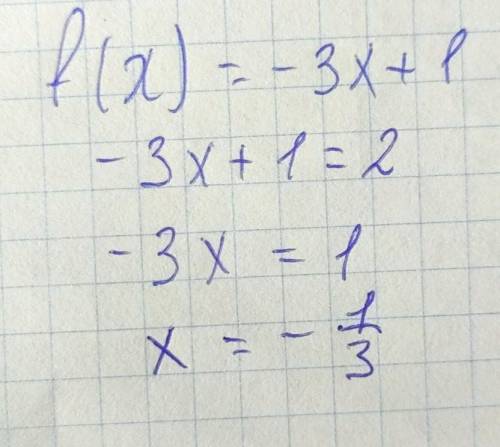 f(x) = -3x+1
-3x+1=2
-3x = 1
x = -1/3